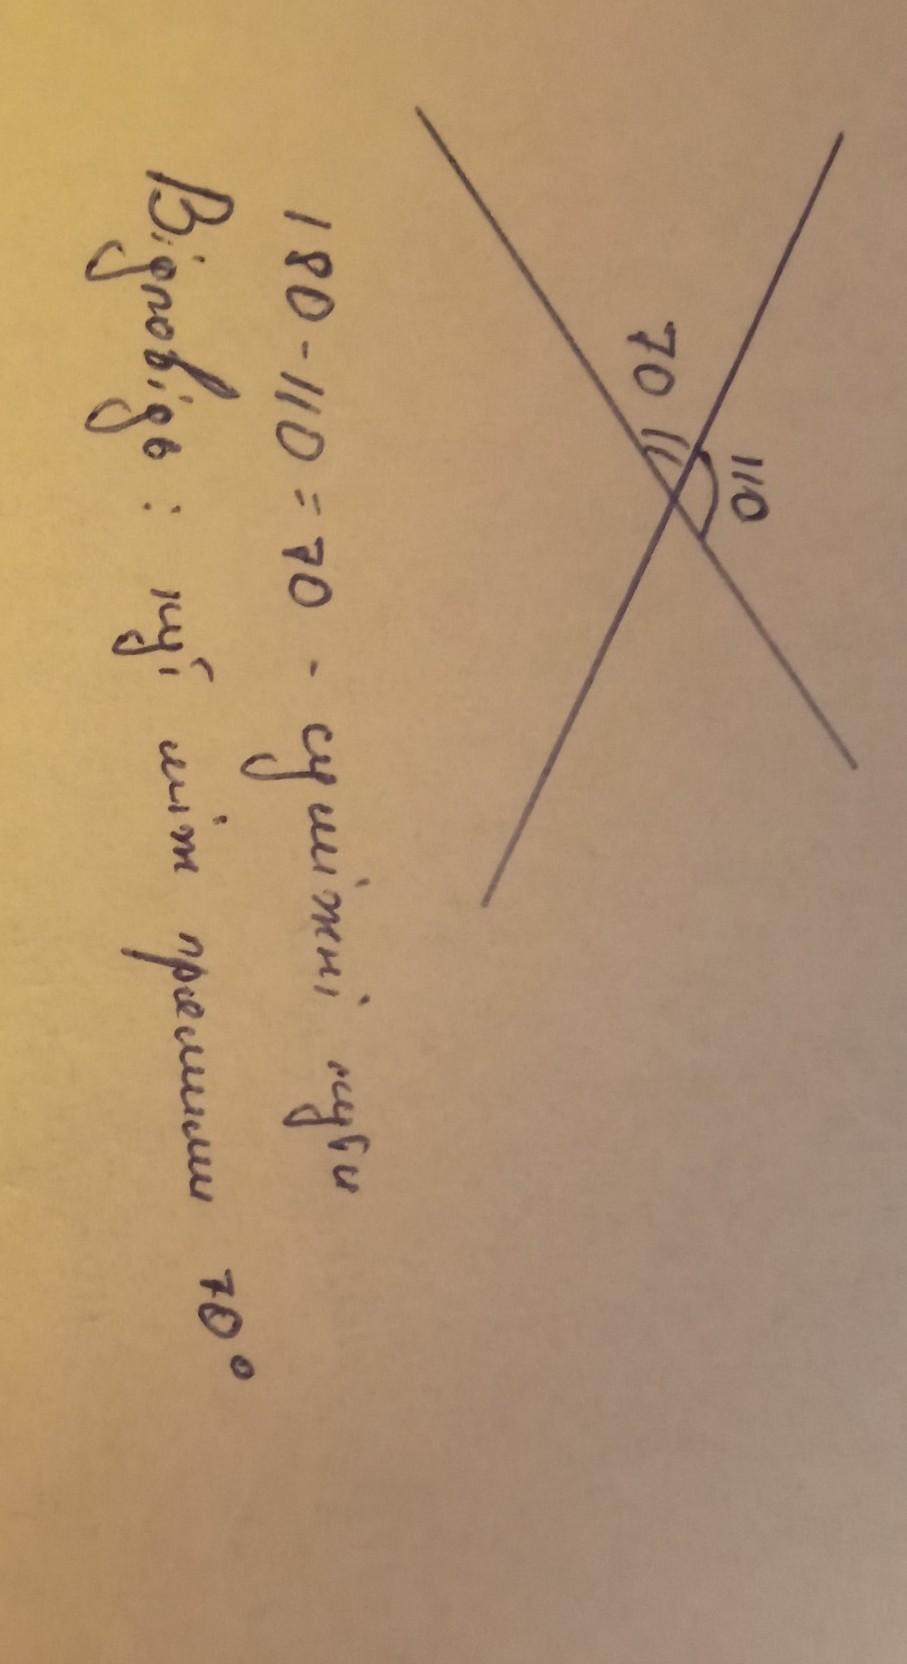 110
70
180-110=70 - суміжні кути
Відповідь: кут між прямими 70°